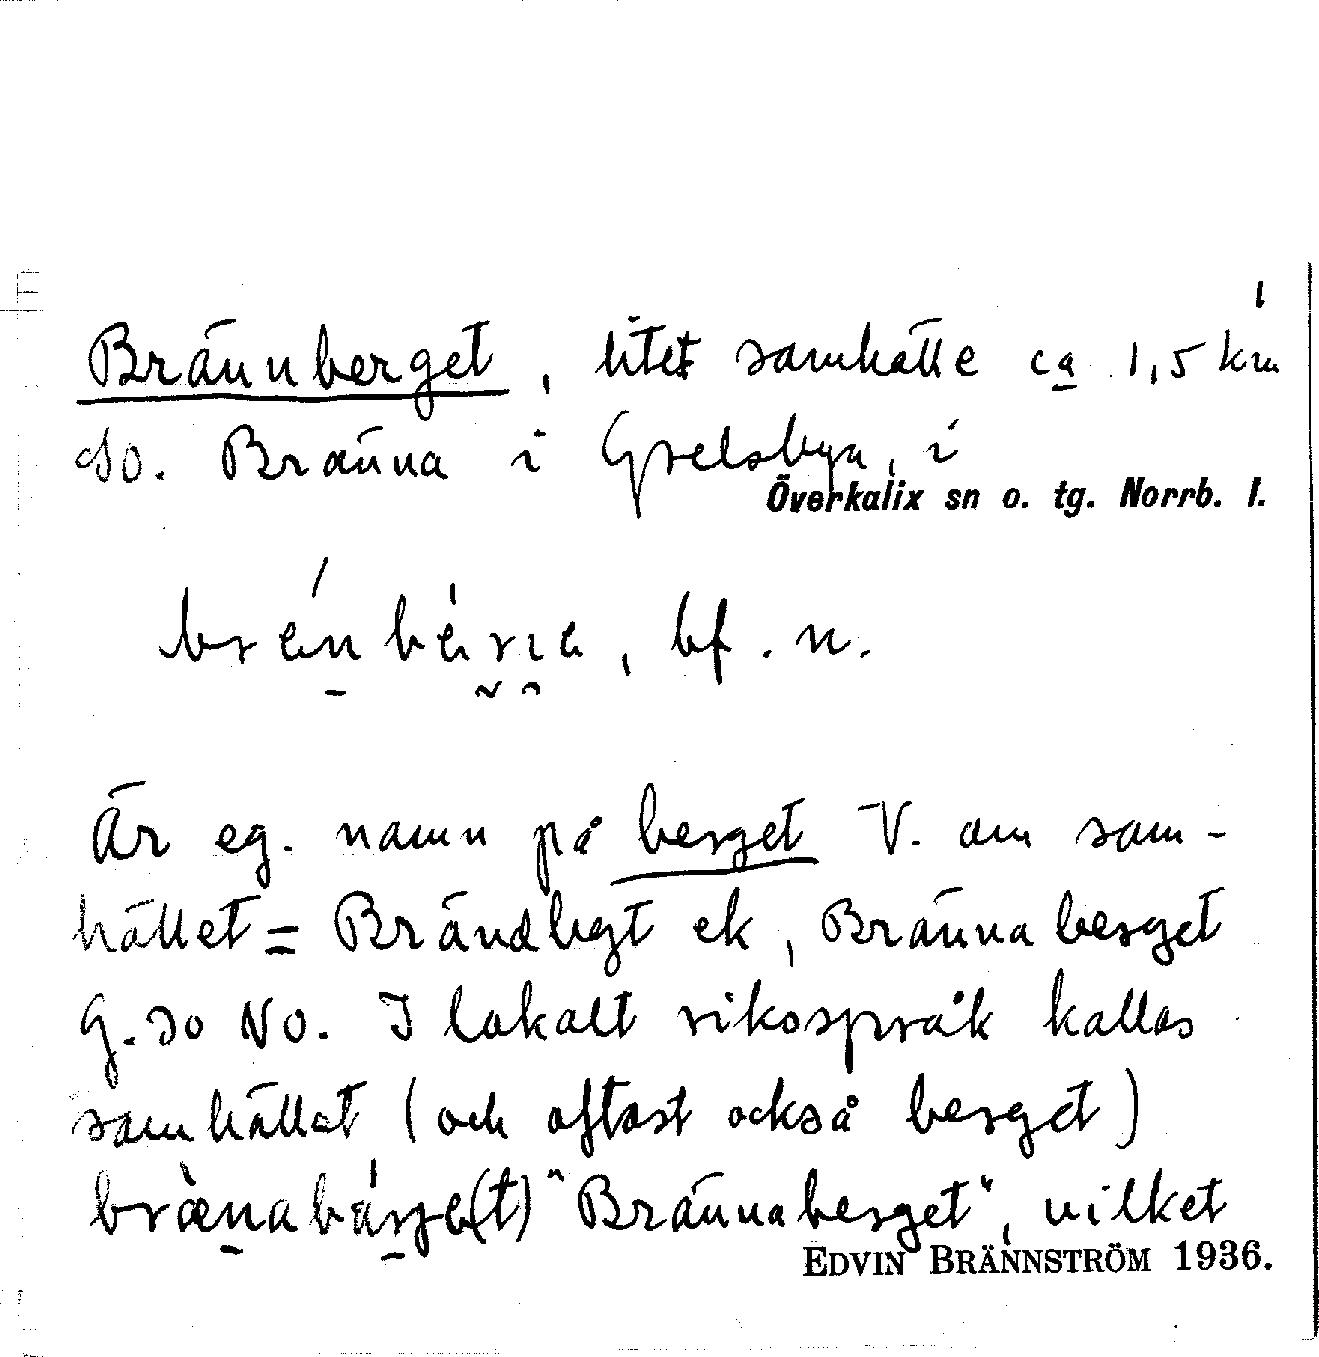 1
Brännberget, litet samhälle ca 1,5 km
SO. Bränna i Grelsbyn, i
Överkalix sn o. tg. Norrb. l.
bf. n.
Är eg. namn på berget V. om sam-
hället = Brändbgt ek, Brännaberget
G. so No. I lokalt riksspråk kallas
samhället (och oftast också berget)
"Brännaberget", vilket
EDVIN BRÄNNSTRÖM 1936.